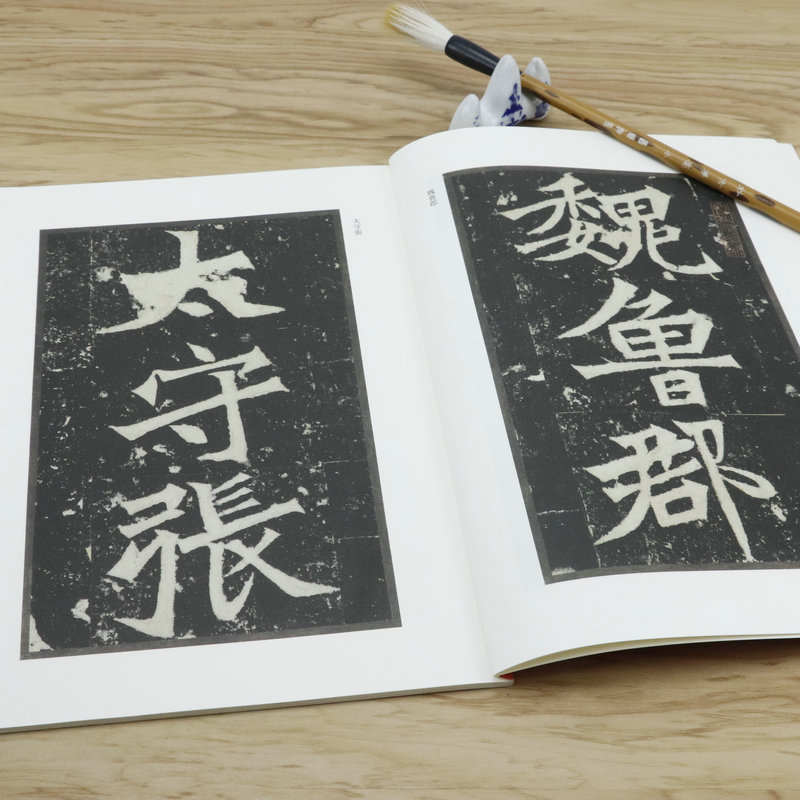 魏魯郡
魏魯郡
太守張
太守張